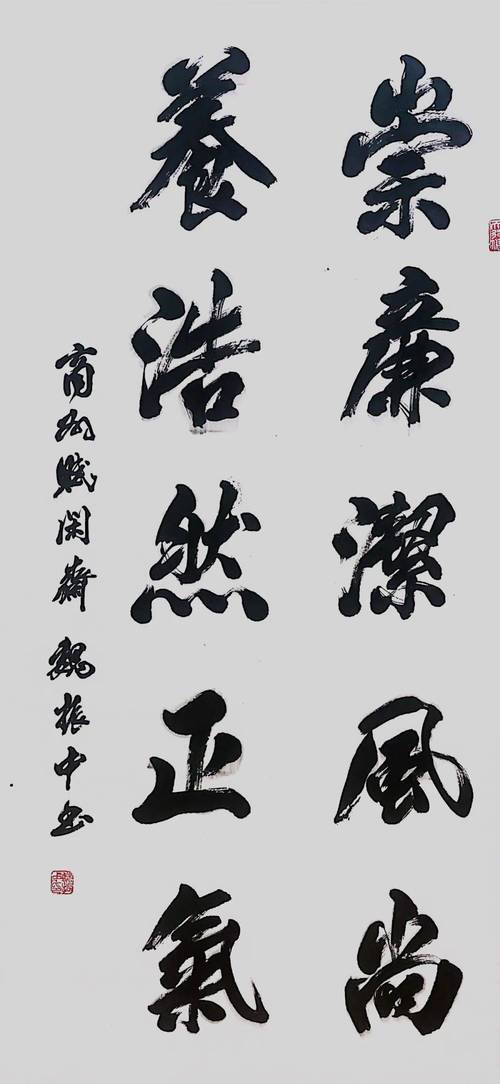 崇廉潔風尚
養浩然正氣
商州賦閑齋魏振中书